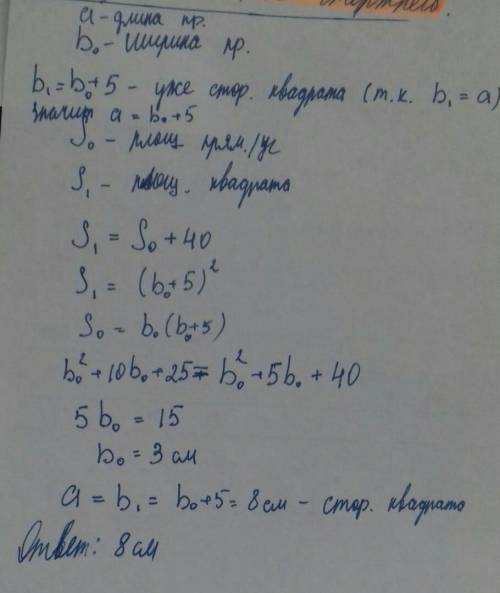 a - длина пр.
b₀ - ширина пр.
b₁ = b₀ + 5 - уже стор. квадрата (т.к. b₁ = a)
значит a = b₀ + 5
S₀ - площ прям./уг
S₁ - площ. квадрата
S₁ = S₀ + 40
S₁ = (b₀ + 5)²
S₀ = b₀ (b₀ + 5)
b₀² + 10b₀ + 25 = b₀² + 5b₀ + 40
5b₀ = 15
b₀ = 3 см
a = b₁ = b₀ + 5 = 8 см - стор. квадрата
Ответ: 8 см